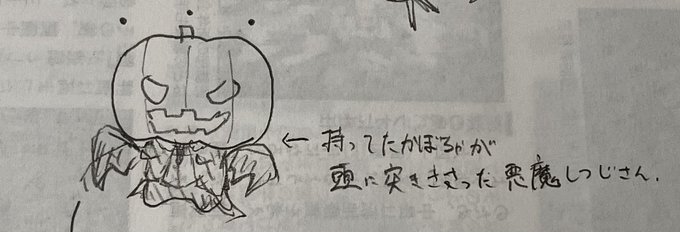 ← 持ってたかぼちゃが
頭に突きささった悪魔しつじさん.